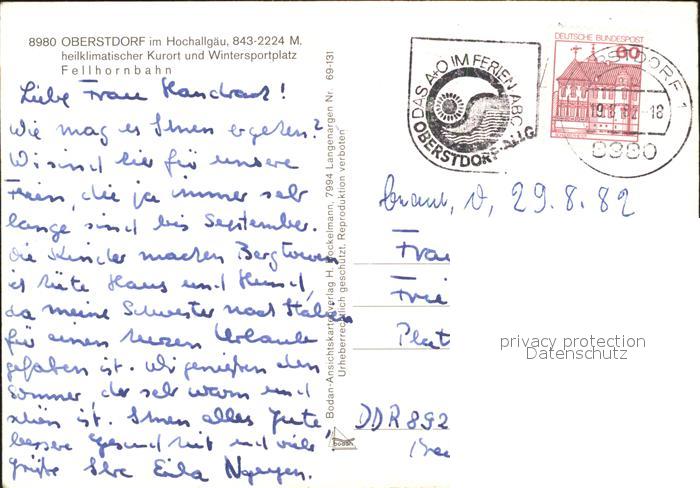 8980 OBERSTDORF im Hochallgäu, 843-2224 M.
heilklimatischer Kurort und Wintersportplatz
Fellhornbahn
Liebe Frau
Wie mag es Ihnen ergehen?
Wir sind hier für unsere
Ferien, die ja immer sehr
lange sind bis September.
Die Kinder machen Bergtouren
ich hüte Haus und Hund,
da meine Schwester nach Italien
für einen kurzen Urlaub
gefahren ist. Wir genießen den
Sommer, der sehr warm und
schön ist. Ihnen alles Gute,
bessere Gesundheit und viele
Grüße Ihre
Bodan-Ansichtskartenverlag H. Hockelmann, 7994 Langenargen Nr. 69-131
Urheberrechtlich geschützt. Reproduktion verboten
bodan
DAS A+O IM FERIEN-ABC
OBERSTDORF-ALLG
DEUTSCHE BUNDESPOST
60
OBERSTDORF 1
-18
8980
29.8.82
Frau
Plat
DDR 892
privacy protection
Datenschutz